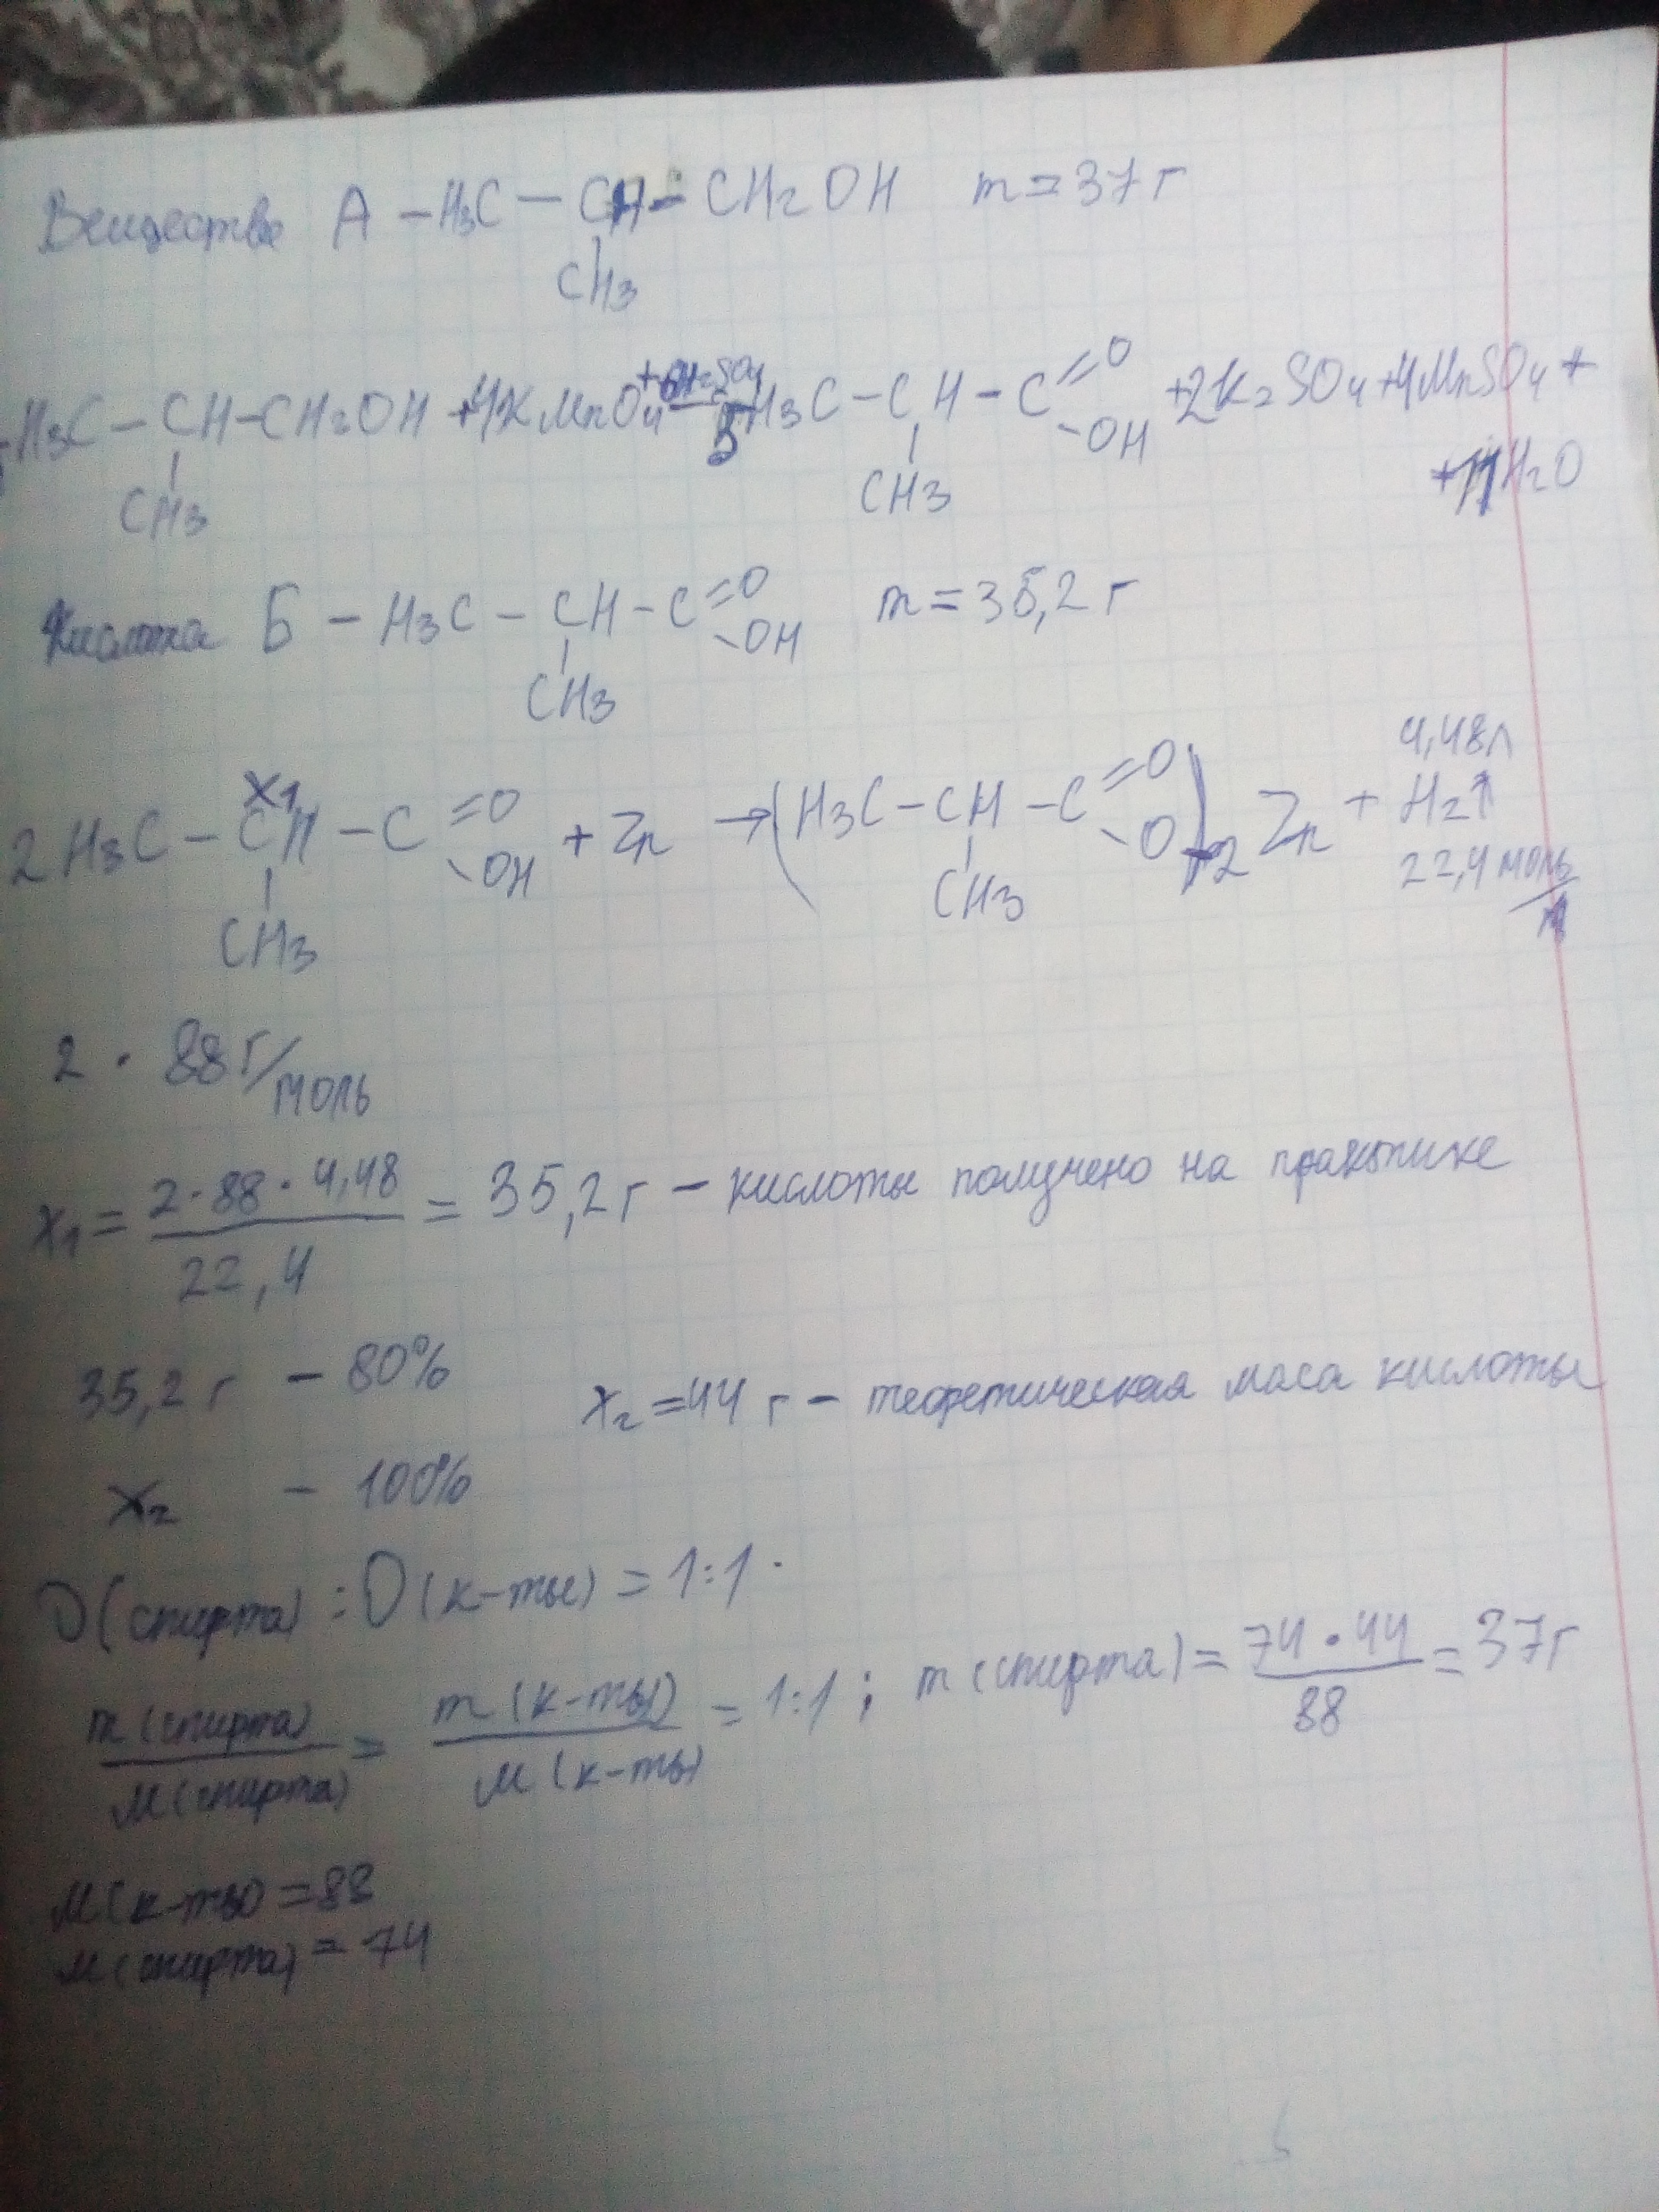 Вещество А – H3C – CH – CH2OH m = 37 г
CH3
H3C – CH – CH2OH + 4KMnO4 +6H2SO4 → 5H3C – CH – C =O –OH + 2K2SO4 + 4MnSO4 +
CH3 CH3 + 11H2O
Кислота Б – H3C – CH – C =O –OH m = 35,2 г
CH3
x1 4,48л
2H3C – CH – C =O –OH + Zn → (H3C – CH – C =O –O)2 Zn + H2↑
CH3 CH3 22,4 моль/л
2 · 88 г/моль
x1 = 2·88·4,48 / 22,4 = 35,2 г – кислоты получено на практике
35,2 г – 80% x2 = 44 г – теоретическая маса кислоты
x2 – 100%
υ(спирта) : υ(к-ты) = 1:1.
m(спирта) / M(спирта) = m(к-ты) / M(к-ты) = 1:1 ; m(спирта) = 74·44 / 88 = 37г
M(к-ты) = 88
M(спирта) = 74